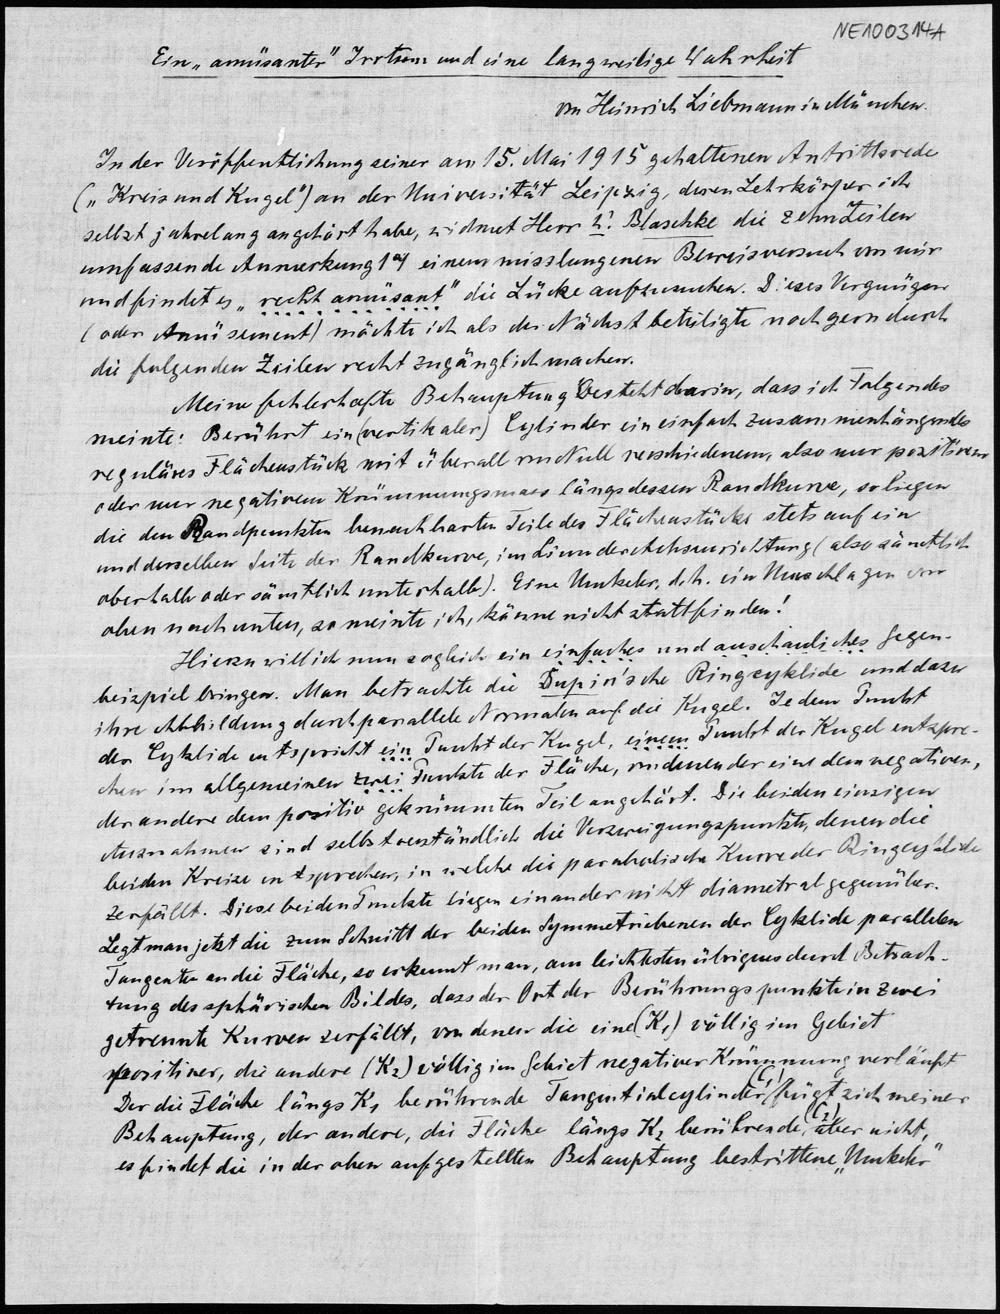 NE100314A
Ein „amüsanter" Irrtum und eine langweilige Wahrheit
von Heinrich Liebmann in München.
In der Veröffentlichung seiner am 15. Mai 1915 gehaltenen Antrittsrede
(„Kreis und Kugel") an der Universität Leipzig, deren Lehrkörper ich
selbst jahrelang angehört habe, widmet Herr W. Blaschke die zehn Zeilen
umfassende Anmerkung 19) einem misslungenen Beweisversuch von mir
und findet es „recht amüsant" die Lücke aufzusuchen. Dieses Vergnügen
(oder Amüsement) möchte ich als der Nächstbeteiligte noch gern durch
die folgenden Zeilen recht zugänglich machen.
Meine fehlerhafte Behauptung besteht darin, dass ich Folgendes
meinte: Berührt ein (vertikaler) Cylinder ein einfach zusammenhängendes
reguläres Flächenstück mit überall von Null verschiedenem, also nur positivem
oder nur negativem Krümmungsmass längs dessen Randkurve, so liegen
die den Randpunkten benachbarten Teile des Flächenstücks stets auf ein
und derselben Seite der Randkurve, im Sinn der Achsenrichtung (also sämtlich
oberhalb oder sämtlich unterhalb). Eine Umkehr, d.h. ein Umschlagen von
oben nach unten, so meinte ich, könne nicht stattfinden!
Hierzu will ich nun sogleich ein einfaches und anschauliches Gegen-
beispiel bringen. Man betrachte die Dupin'sche Ringcyklide und dazu
ihre Abbildung durch parallele Normalen auf die Kugel. Jedem Punkt
der Cyklide entspricht ein Punkt der Kugel, einem Punkt der Kugel entspre-
chen im allgemeinen zwei Punkte der Fläche, von denen der eine dem negativen,
der andere dem positiv gekrümmten Teil angehört. Die beiden einzigen
Ausnahmen sind selbstverständlich die Verzweigungspunkte, denen die
beiden Kreise entsprechen, in welche die parabolische Kurve der Ringcyklide
zerfällt. Diese beiden Punkte liegen einander nicht diametral gegenüber.
Legt man jetzt die zum Schnitt der beiden Symmetrieebenen der Cyklide parallelen
Tangenten an die Fläche, so erkennt man, am leichtesten übrigens durch Betrach-
tung des sphärischen Bildes, dass der Ort der Berührungspunkte in zwei
getrennte Kurven zerfällt, von denen die eine (K₁) völlig im Gebiet
positiver, die andere (K₂) völlig im Gebiet negativer Krümmung verläuft
Der die Fläche längs K₁ berührende Tangentialcylinder (C₁) fügt sich meiner
Behauptung, der andere, die Fläche längs K₂ berührende (C₂) aber nicht,
es findet die in der oben aufgestellten Behauptung bestrittene „Umkehr"